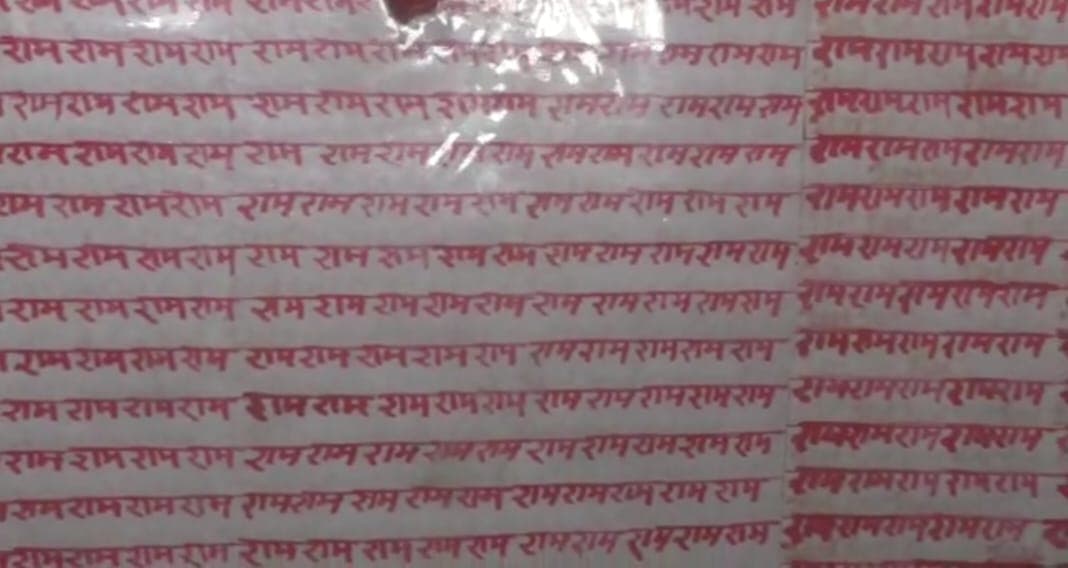 राम राम राम राम राम राम राम राम राम राम राम राम राम
राम राम राम राम राम राम राम राम राम राम राम राम राम राम
राम राम राम राम राम राम राम राम राम राम राम राम राम राम राम राम राम राम राम
राम राम राम राम राम राम राम राम राम राम राम राम राम राम राम राम राम राम
राम राम राम राम राम राम राम राम राम राम राम राम राम राम राम राम राम राम राम
राम राम राम राम राम राम राम राम राम राम राम राम राम राम राम राम राम राम राम
राम राम राम राम राम राम राम राम राम राम राम राम राम राम राम राम राम राम राम
राम राम राम राम राम राम राम राम राम राम राम राम राम राम राम राम राम राम राम
राम राम राम राम राम राम राम राम राम राम राम राम राम राम राम राम राम राम राम
राम राम राम राम राम राम राम राम राम राम राम राम राम राम राम राम राम राम राम
राम राम राम राम राम राम राम राम राम राम राम राम राम राम राम राम राम राम राम
राम राम राम राम राम राम राम राम राम राम राम राम राम राम राम राम राम राम राम